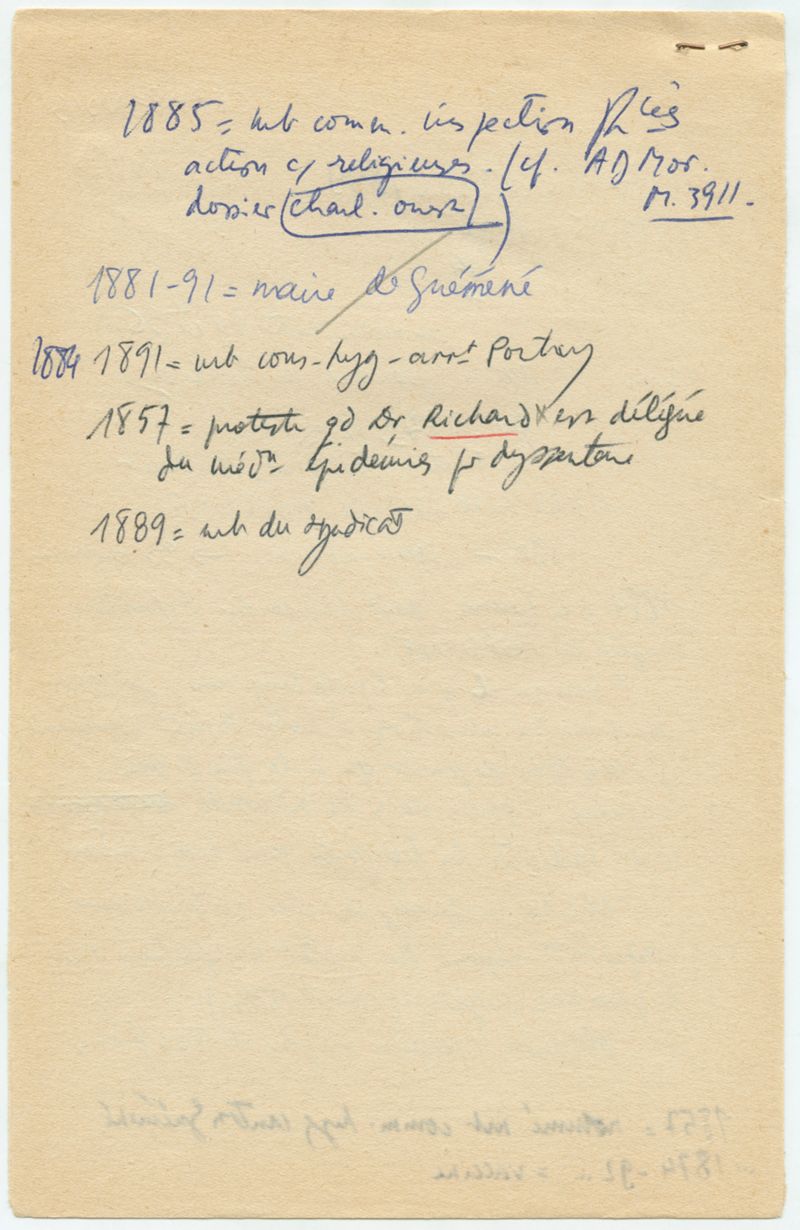 1885 = mb comm. inspection Phcies
action c/ religieuses. (cf. AD Mor.
dossier (charl. ouest)) M. 3911.
1881-91 = maire de Guéméné
1884 1891 = mb cons-hyg-arrt Pontivy
1857 = proteste qd Dr Richard x est délégué
du médn épidémies pr dyssenterie
1889 = mb du syndicat